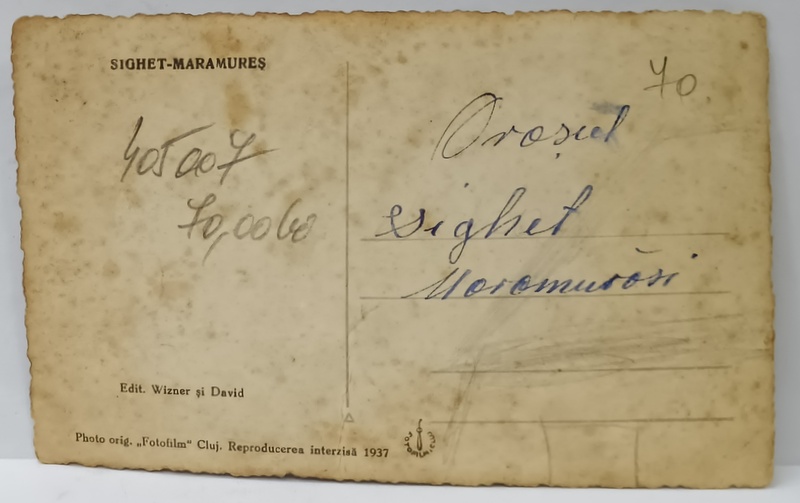 SIGHET-MARAMUREȘ
70
Orașul
Sighet
405007
70,00
Edit. Wizner și David
Photo orig. „Fotofilm“ Cluj. Reproducerea interzisă 1937
FOTOFILM, CLUJ